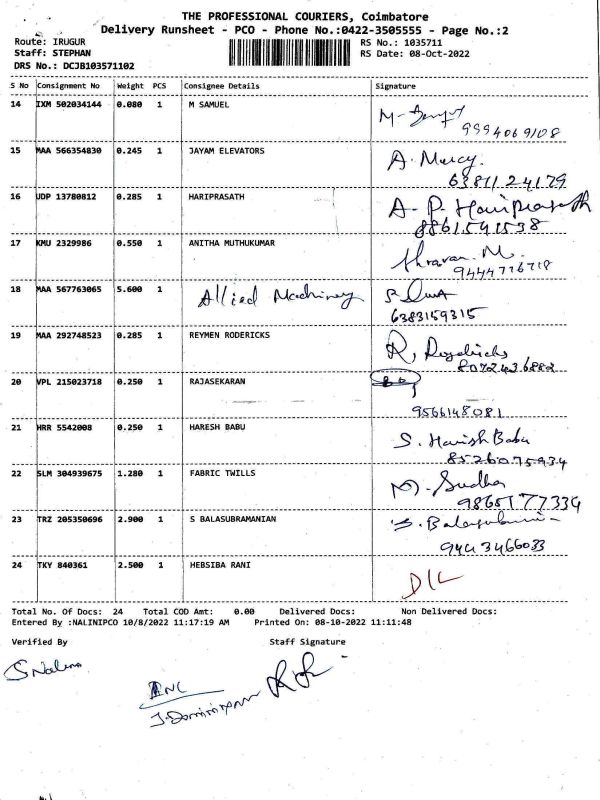 THE PROFESSIONAL COURIERS, Coimbatore
Delivery Runsheet - PCO - Phone No.:0422-3505555 - Page No.:2
Route: IRUGUR RS No.: 1035711
Staff: STEPHAN RS Date: 08-Oct-2022
DRS No.: DCJB103571102
S No Consignment No Weight PCS Consignee Details Signature
14 IXM 502034144 0.080 1 M SAMUEL
9994069108
15 MAA 566354830 0.245 1 JAYAM ELEVATORS A. Mercy.
6381124179
16 UDP 13780812 0.285 1 HARIPRASATH A. P. Hariprasath
8861541538
17 KMU 2329986 0.550 1 ANITHA MUTHUKUMAR
9444776718
18 MAA 567763065 5.600 1 Allied Machinery
6383159315
19 MAA 292748523 0.285 1 REYMEN RODERICKS R.
8072436882
20 VPL 215023718 0.250 1 RAJASEKARAN
9566148081
21 HRR 5542008 0.250 1 HARESH BABU S. Harish Babu
8526075934
22 SLM 304939675 1.280 1 FABRIC TWILLS M. Sudha
9865177334
23 TRZ 205350696 2.900 1 S BALASUBRAMANIAN
9443466033
24 TKY 840361 2.500 1 HEBSIBA RANI D/L
Total No. Of Docs: 24 Total COD Amt: 0.00 Delivered Docs: Non Delivered Docs:
Entered By :NALINIPCO 10/8/2022 11:17:19 AM Printed On: 08-10-2022 11:11:48
Verified By Staff Signature